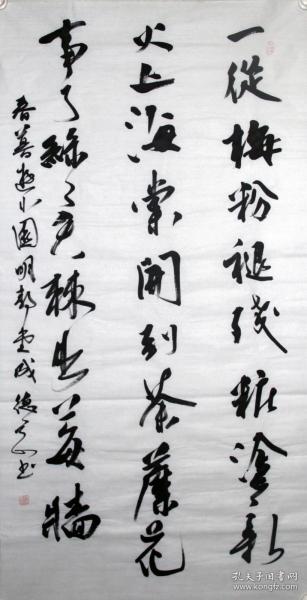 一從梅粉褪殘粧塗新
火上海棠開到荼蘼花
事了絲々天棘出莓牆
春暮遊小園明
孔夫子旧书网